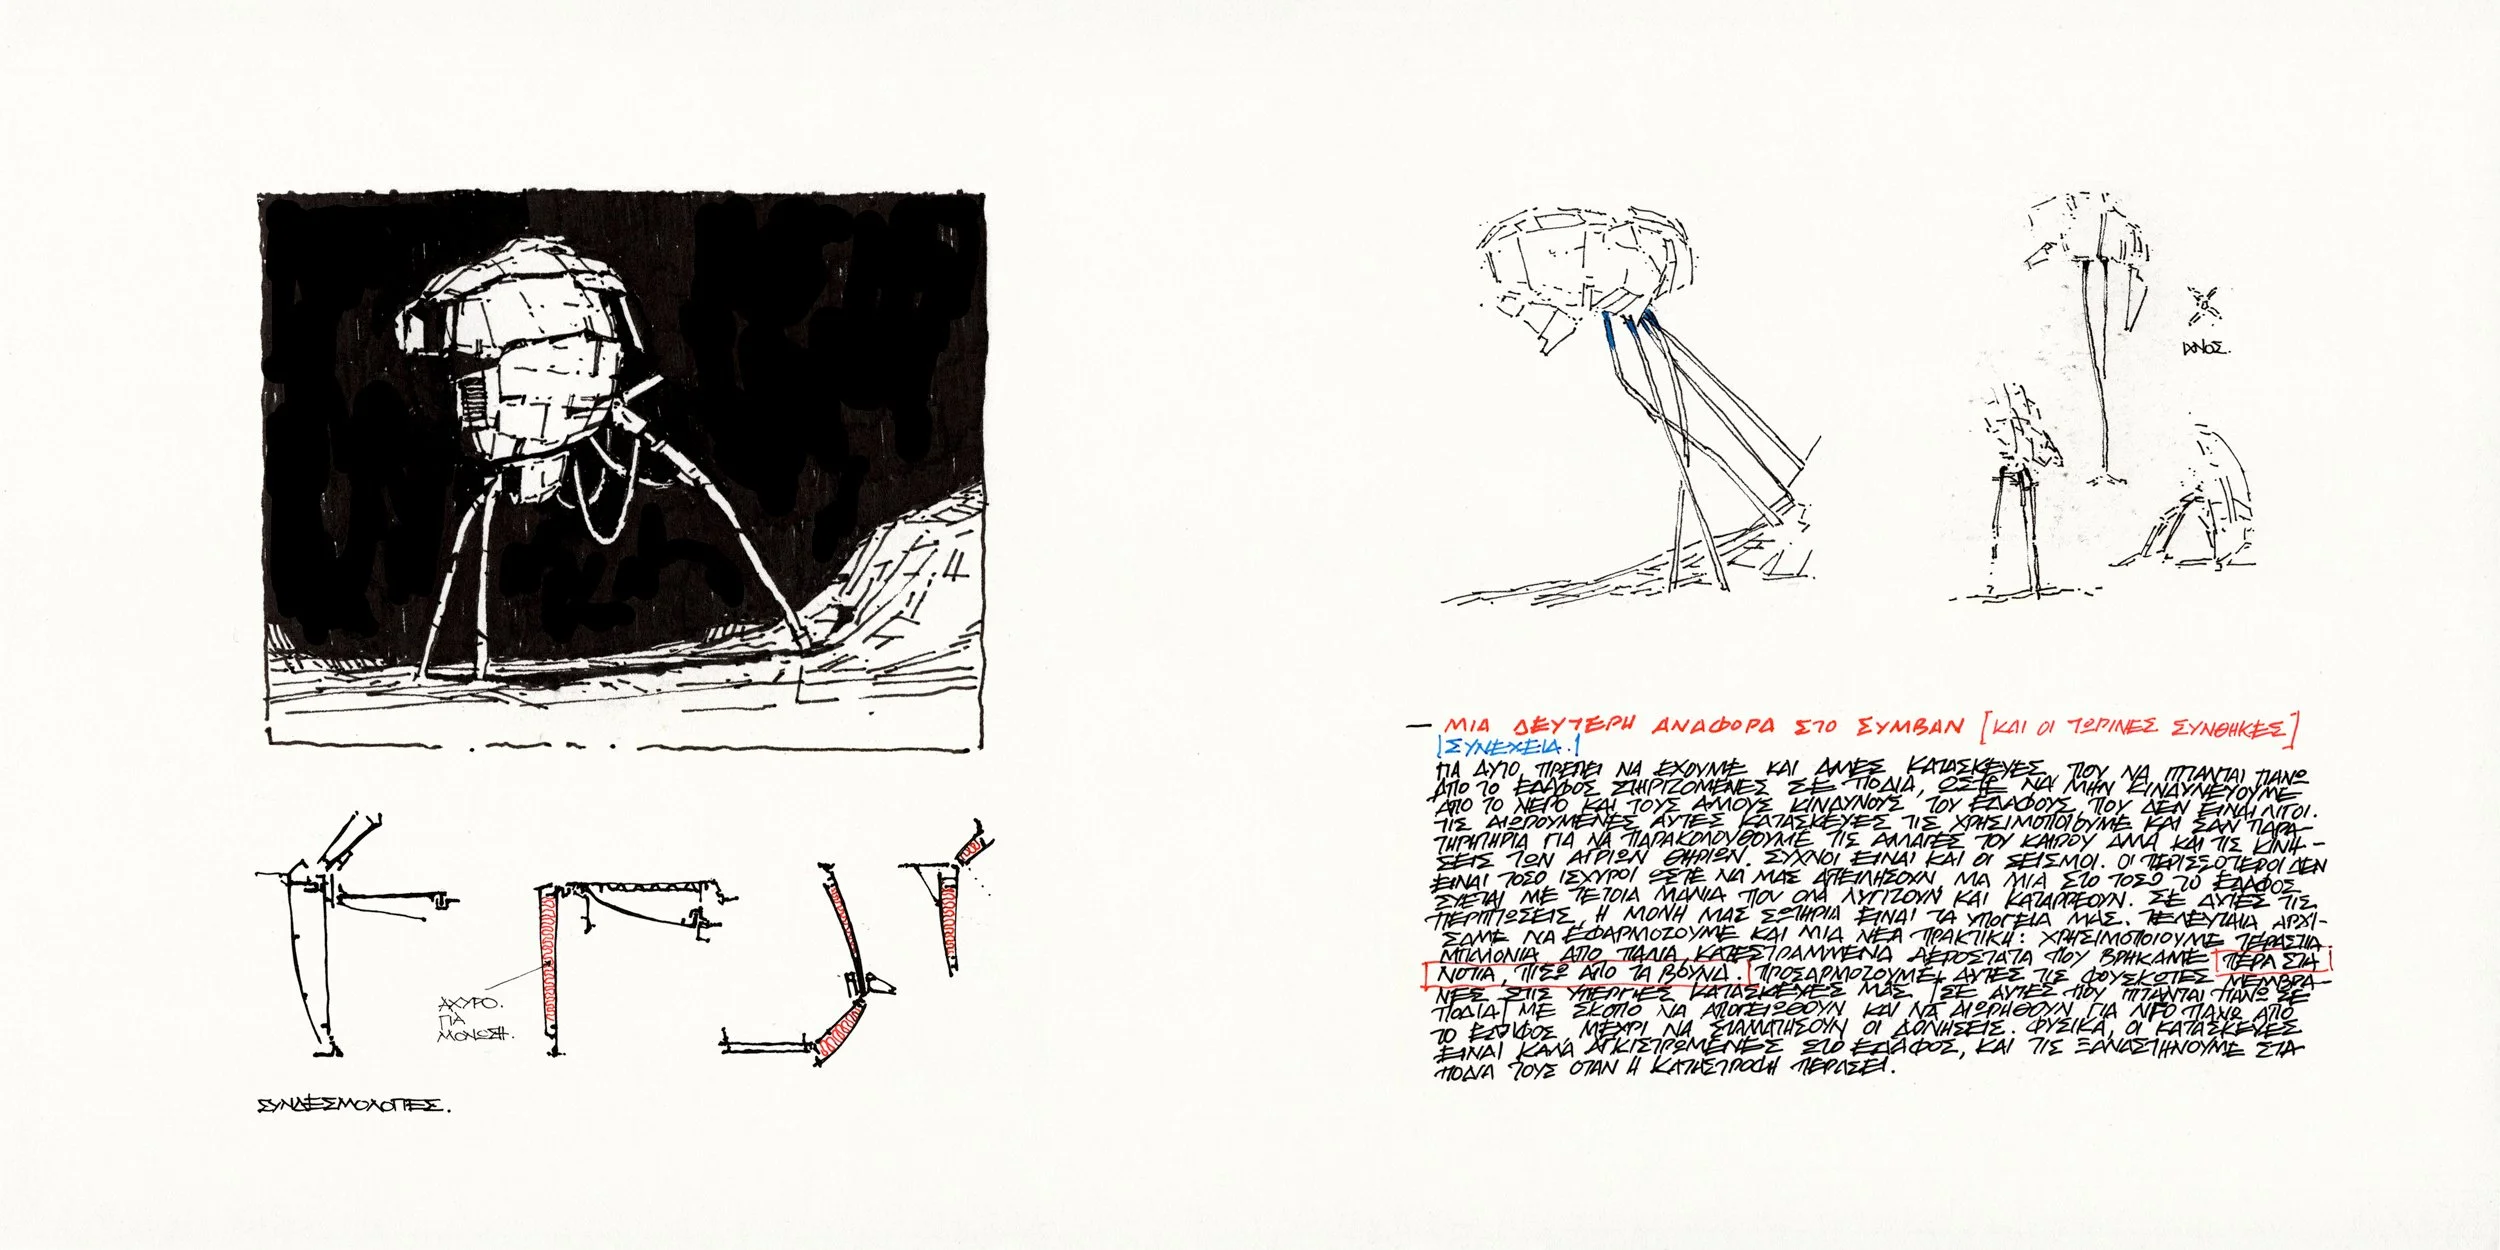 ΑΧΥΡΟ.
ΓΙΑ
ΜΟΝΩΣΗ.
ΣΥΝΔΕΣΜΟΛΟΓΙΕΣ.
— ΜΙΑ ΔΕΥΤΕΡΗ ΑΝΑΦΟΡΑ ΣΤΟ ΣΥΜΒΑΝ [ΚΑΙ ΟΙ ΤΩΡΙΝΕΣ ΣΥΝΘΗΚΕΣ]
|ΣΥΝΕΧΕΙΑ.|
ΓΙΑ ΑΥΤΟ ΠΡΕΠΕΙ ΝΑ ΕΧΟΥΜΕ ΚΑΙ ΑΛΛΕΣ ΚΑΤΑΣΚΕΥΕΣ ΠΟΥ ΝΑ ΙΠΤΑΝΤΑΙ ΠΑΝΩ
ΑΠΟ ΤΟ ΕΔΑΦΟΣ ΣΤΗΡΙΖΟΜΕΝΕΣ ΣΕ ΠΟΔΙΑ, ΩΣΤΕ ΝΑ ΜΗΝ ΚΙΝΔΥΝΕΥΟΥΜΕ
ΑΠΟ ΤΟ ΝΕΡΟ ΚΑΙ ΤΟΥΣ ΑΛΛΟΥΣ ΚΙΝΔΥΝΟΥΣ ΤΟΥ ΕΔΑΦΟΥΣ ΠΟΥ ΔΕΝ ΕΙΝΑΙ ΛΙΓΟΙ.
ΤΙΣ ΑΙΩΡΟΥΜΕΝΕΣ ΑΥΤΕΣ ΚΑΤΑΣΚΕΥΕΣ ΤΙΣ ΧΡΗΣΙΜΟΠΟΙΟΥΜΕ ΚΑΙ ΣΑΝ ΠΑΡΑ-
ΤΗΡΗΤΗΡΙΑ ΓΙΑ ΝΑ ΠΑΡΑΚΟΛΟΥΘΟΥΜΕ ΤΙΣ ΑΛΛΑΓΕΣ ΤΟΥ ΚΑΙΡΟΥ ΑΛΛΑ ΚΑΙ ΤΙΣ ΚΙΝΗ-
ΣΕΙΣ ΤΩΝ ΑΓΡΙΩΝ ΘΗΡΙΩΝ. ΣΥΧΝΟΙ ΕΙΝΑΙ ΚΑΙ ΟΙ ΣΕΙΣΜΟΙ. ΟΙ ΠΕΡΙΣΣΟΤΕΡΟΙ ΔΕΝ
ΕΙΝΑΙ ΤΟΣΟ ΙΣΧΥΡΟΙ ΩΣΤΕ ΝΑ ΜΑΣ ΑΠΕΙΛΗΣΟΥΝ, ΜΑ ΜΙΑ ΣΤΟ ΤΟΣΟ ΤΟ ΕΔΑΦΟΣ
ΣΕΙΕΤΑΙ ΜΕ ΤΕΤΟΙΑ ΜΑΝΙΑ ΠΟΥ ΟΛΑ ΛΥΓΙΖΟΥΝ ΚΑΙ ΚΑΤΑΡΡΕΟΥΝ. ΣΕ ΑΥΤΕΣ ΤΙΣ
ΠΕΡΙΠΤΩΣΕΙΣ, Η ΜΟΝΗ ΜΑΣ ΣΩΤΗΡΙΑ ΕΙΝΑΙ ΤΑ ΥΠΟΓΕΙΑ ΜΑΣ. ΤΕΛΕΥΤΑΙΑ ΑΡΧΙ-
ΣΑΜΕ ΝΑ ΕΦΑΡΜΟΖΟΥΜΕ ΚΑΙ ΜΙΑ ΝΕΑ ΠΡΑΚΤΙΚΗ: ΧΡΗΣΙΜΟΠΟΙΟΥΜΕ ΤΕΡΑΣΤΙΑ
ΜΠΑΛΟΝΙΑ ΑΠΟ ΠΑΛΙΑ, ΚΑΤΕΣΤΡΑΜΜΕΝΑ ΑΕΡΟΣΤΑΤΑ ΠΟΥ ΒΡΗΚΑΜΕ ΠΕΡΑ ΣΤΑ
ΝΟΤΙΑ, ΠΙΣΩ ΑΠΟ ΤΑ ΒΟΥΝΑ. ΠΡΟΣΑΡΜΟΖΟΥΜΕ ΑΥΤΕΣ ΤΙΣ ΦΟΥΣΚΩΤΕΣ ΜΕΜΒΡΑ-
ΝΕΣ ΣΤΙΣ ΥΠΕΡΓΕΙΕΣ ΚΑΤΑΣΚΕΥΕΣ ΜΑΣ |ΣΕ ΑΥΤΕΣ ΠΟΥ ΙΠΤΑΝΤΑΙ ΠΑΝΩ ΣΕ
ΠΟΔΙΑ| ΜΕ ΣΚΟΠΟ ΝΑ ΑΠΟΓΕΙΩΘΟΥΝ ΚΑΙ ΝΑ ΑΙΩΡΗΘΟΥΝ ΓΙΑ ΛΙΓΟ ΠΑΝΩ ΑΠΟ
ΤΟ ΕΔΑΦΟΣ, ΜΕΧΡΙ ΝΑ ΣΤΑΜΑΤΗΣΟΥΝ ΟΙ ΔΟΝΗΣΕΙΣ. ΦΥΣΙΚΑ, ΟΙ ΚΑΤΑΣΚΕΥΕΣ
ΕΙΝΑΙ ΚΑΛΑ ΑΓΚΙΣΤΡΩΜΕΝΕΣ ΣΤΟ ΕΔΑΦΟΣ, ΚΑΙ ΤΙΣ ΞΑΝΑΣΤΗΝΟΥΜΕ ΣΤΑ
ΠΟΔΙΑ ΤΟΥΣ ΟΤΑΝ Η ΚΑΤΑΣΤΡΟΦΗ ΠΕΡΑΣΕΙ.